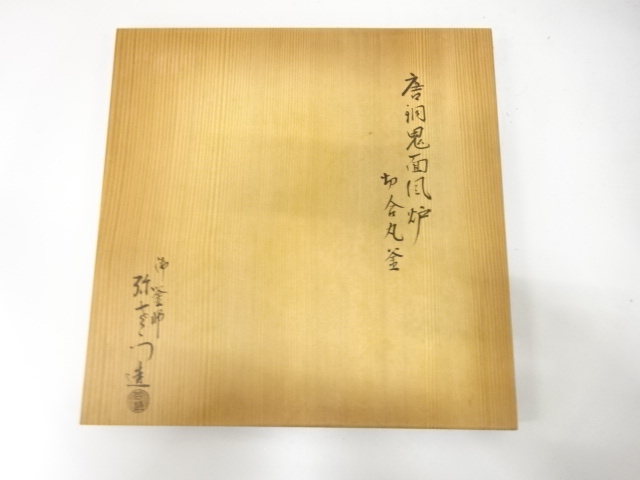 唐銅鬼面風炉
切合丸釜
御釜師
弥右衛門造